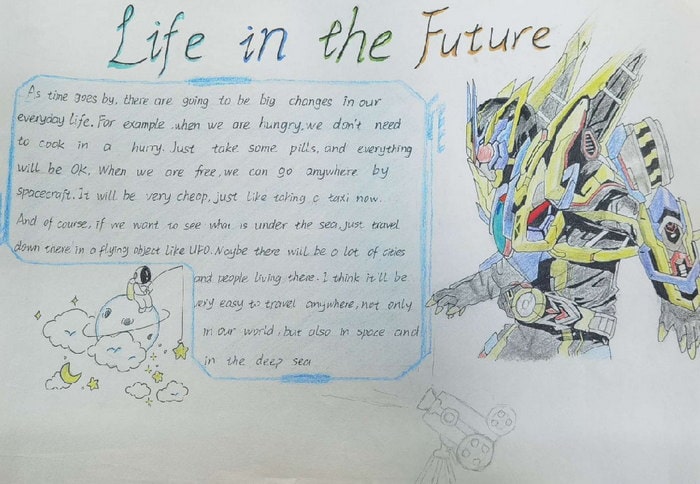 Life in the Future
As time goes by, there are going to be big changes in our
everyday life. For example, when we are hungry, we don't need
to cook in a hurry. Just take some pills, and everything
will be OK. When we are free, we can go anywhere by
spacecraft. It will be very cheap, just like taking a taxi now.
And of course, if we want to see what is under the sea, just travel
down there in a flying object like UFO. Maybe there will be a lot of cities
and people living there. I think it'll be
very easy to travel anywhere, not only
in our world, but also in space and
in the deep sea